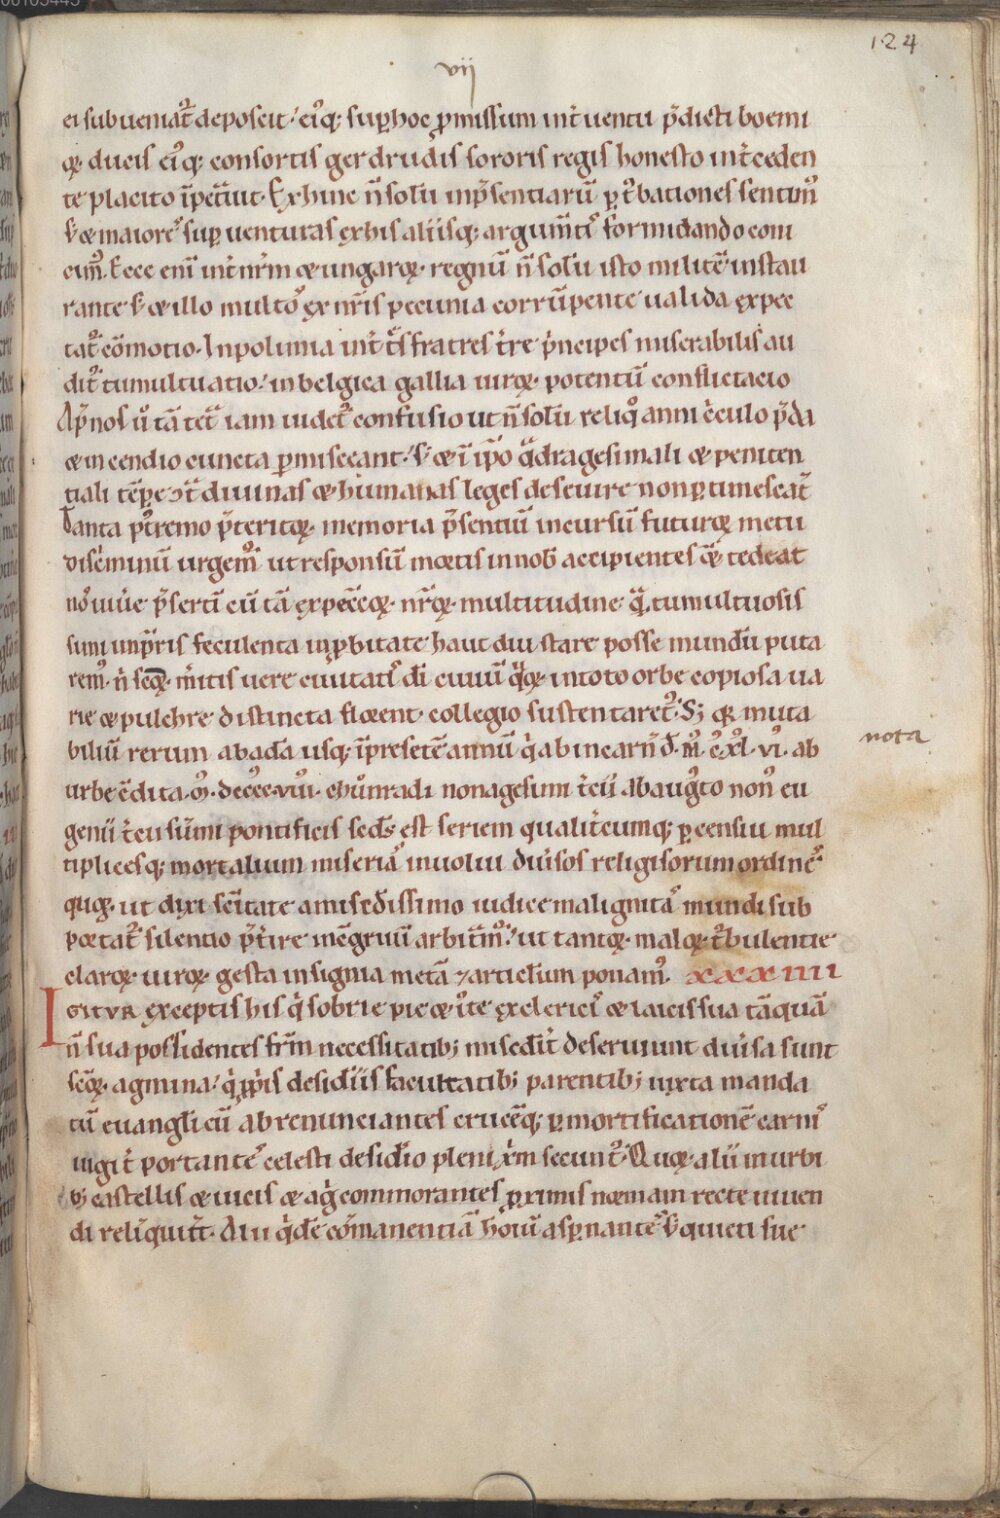 124
vii
ei subueniat᷑ deposcit. ei᷒q; sup hoc p̱missum int̾uentu p̄dicti boemi
cꝝ ducis ei᷒q; consortis gerdrudis sororis regis honesto int̾ceden
te placito īpet̾uit. Exhinc n̄ solū inp̄sentiarū ꝑt̾bationes sentim᷒
s; & maiores sup uenturas ex his aliisq; argum̄tis formidando coni
cim᷒. Ecce eni int̾ nr̄m & ungarꝝ regnū n̄ solū isto militē instau
rante s; & illo multos ex nr̄is pecunia corrūpente ualida expec
tat᷑ cōmotio. In polunia int̾ t̾s fratres t̾re p̾ncipes miserabilis au
dit᷑ tumultuatio. in belgica gallia uirꝝ potentū conflictacio
Ap̄ nos u̾o tā tet̾ iam uidet᷑ confusio ut n̄ solū reliq᷒ anni c̾culo p̄da
& incendio cuncta ꝑmisceant. s; & ī ip̄o q̾dragesimali & peniten
tiali tēꝑe ɔt̾ diuinas & humanas leges deseuire non ꝑtimescāt
Tanta p᷒tremo p̄teritꝝ memoria p̄sentiū incursū futurꝝ metu
disc̾minū urgem᷒ ut responsū mortis in nob̄ accipientes etiā tedeat
nos uiu̾e p̄sertī cū tā exp̄ccꝝ nr̄ꝝ multitudine q̄ tumultuosis
simi tēp̄ris feculenta inp̱bitate haut diu stare posse mundū puta
rem᷒. n̄ scōꝝ m̾itis uere ciuitatis dī ciuiū q̾ꝝ in toto orbe copiosa ua
rie & pulchre distincta florent collegio sustentaret᷑. S; qꝛ muta
biliū rerum ab adā usq; ī presentē annū q̾ ab incarn̄ d̄. m᷒. c᷒. xl᷒. vi᷒. ab
urbe c̄dita. m᷒. dcccc᷒. viii. chūnradi nonagesimi t̾cii ab aug᷒to non᷒ eu
genii t̾cii sūmi pontificis sed̾s est seriem qualit̾cumq; ꝑcensui mul
tiplicesq; mortalium miserias inuolui diu̾sos religisorum ordines
quoꝝ ut dixi sc̄itate a misc̾dissimo iudice malignitas mundi sub
portat᷑ silentio p̄t̾ire incōgruū arbitr̄m᷒. ut tantoꝝ maloꝝ t̾bulentie
clarꝝ uirꝝ gesta insignia metā ⁊ articlūm ponam᷒. XXXIIII
nota
IGITUR exceptis his q̾ sobrie pie & i᷒te ex clericis & laicis sua tāquā
n̄ sua possidentes fr̄m necessitatib; misc̾dit̾ deseruiunt diu̾sa sunt
sc̄oꝝ agmina. q̾ ꝓp̾is desidiis facultatib; parentib; iuxta manda
tū euanglicū abrenunciantes crucēq; ꝑ mortificationē carnis
iugit̾ portantes celesti desid̾io pleni xp̄m secunt᷑. Quoꝝ alii in urbi
b; castellis & uicis & ag̾s commorantes ꝓximis normam recte uiuen
di relīquūt. Alii q̾dē cōmanentiā hoīū aspnantes s; quieti sue